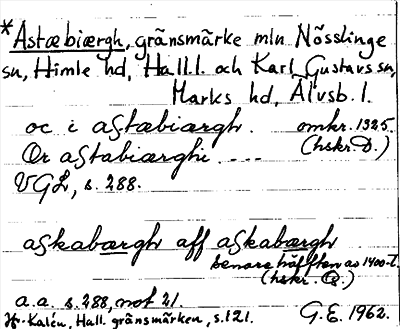 *Astæbiærgh, gränsmärke mln Nösslinge
sn, Himle hd, Hall.l. och Karl Gustavs sn,
Marks hd, Älvsb. l.
oc i aſtæbiærgh. omkr. 1325.
Or aſtabiærghi.... (hskr. D.)
VGL, s. 288.
aſkabærgh aff aſkabærgh
senare hälften av 1400-t.
(hskr. Q.)
a.a. s. 288, not 21.
Jfr. Kalén, Hall. gränsmärken, s. 121.
G.E. 1962.